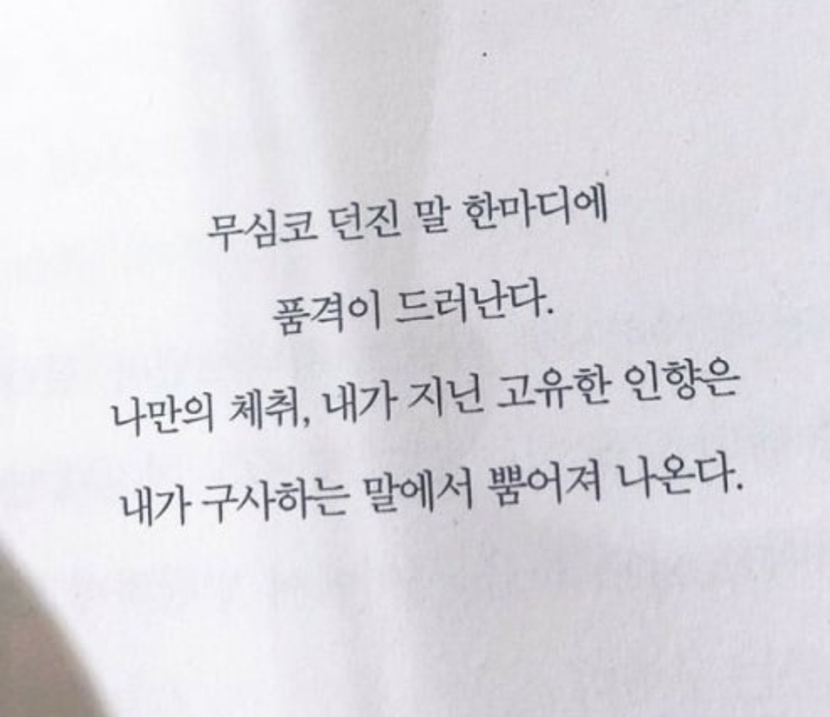 무심코 던진 말 한마디에
품격이 드러난다.
나만의 체취, 내가 지닌 고유한 인향은
내가 구사하는 말에서 뿜어져 나온다.